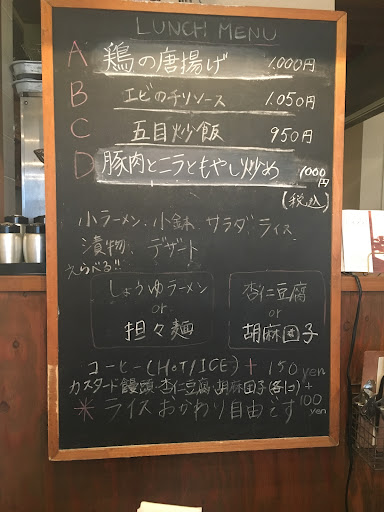 LUNCH MENU
A 鶏の唐揚げ 1.000円
B エビのチリソース 1.050円
C 五目炒飯 950円
D 豚肉とニラともやし炒め 1000円
(税込)
小ラーメン、小鉢、サラダ、ライス、
漬物、デザート
えらべる!!
しょうゆラーメン
or
担々麺
杏仁豆腐
or
胡麻団子
コーヒー(HOT/ICE) + 150yen
カスタード饅頭・杏仁豆腐・胡麻団子(各1コ) + 100yen
※ライスおかわり自由です